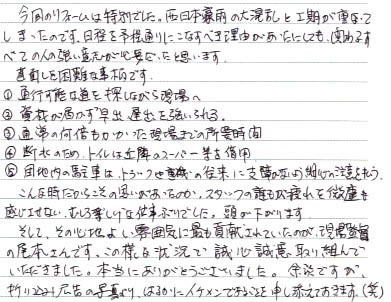 今回のリフォームは特別でした。西日本豪雨の大混乱と工期が重なって
しまったのです。日程を予想通りにこなすべき理由があったにしても、関わるす
べての人の強い意志が必要だったと思います。
真剣に困難な事柄です。
①通行可能な道を探しながら現場へ
②資材が届かず早出、遅出を強いられる。
③通常の何倍もかかった現場までの所要時間
④断水のため、トイレは近隣のスーパー等を借用
⑤団地内の駐車は、トラックや重機の往来に支障がないよう細心の注意を払う。
こんな時だからこその思いがあってなのか、スタッフの誰もが疲れを微塵も
感じさせない、むしろ楽しげな仕事ぶりでした。頭が下がります。
そして、その心地よい雰囲気に最も貢献されていたのが、現場監督
の尾本さんです。この様な状況で誠心誠意取り組んで
いただきました。本当にありがとうございました。余談ですが、
折り込み広告の写真より、はるかにイケメンであることを申し添えておきます。(笑)